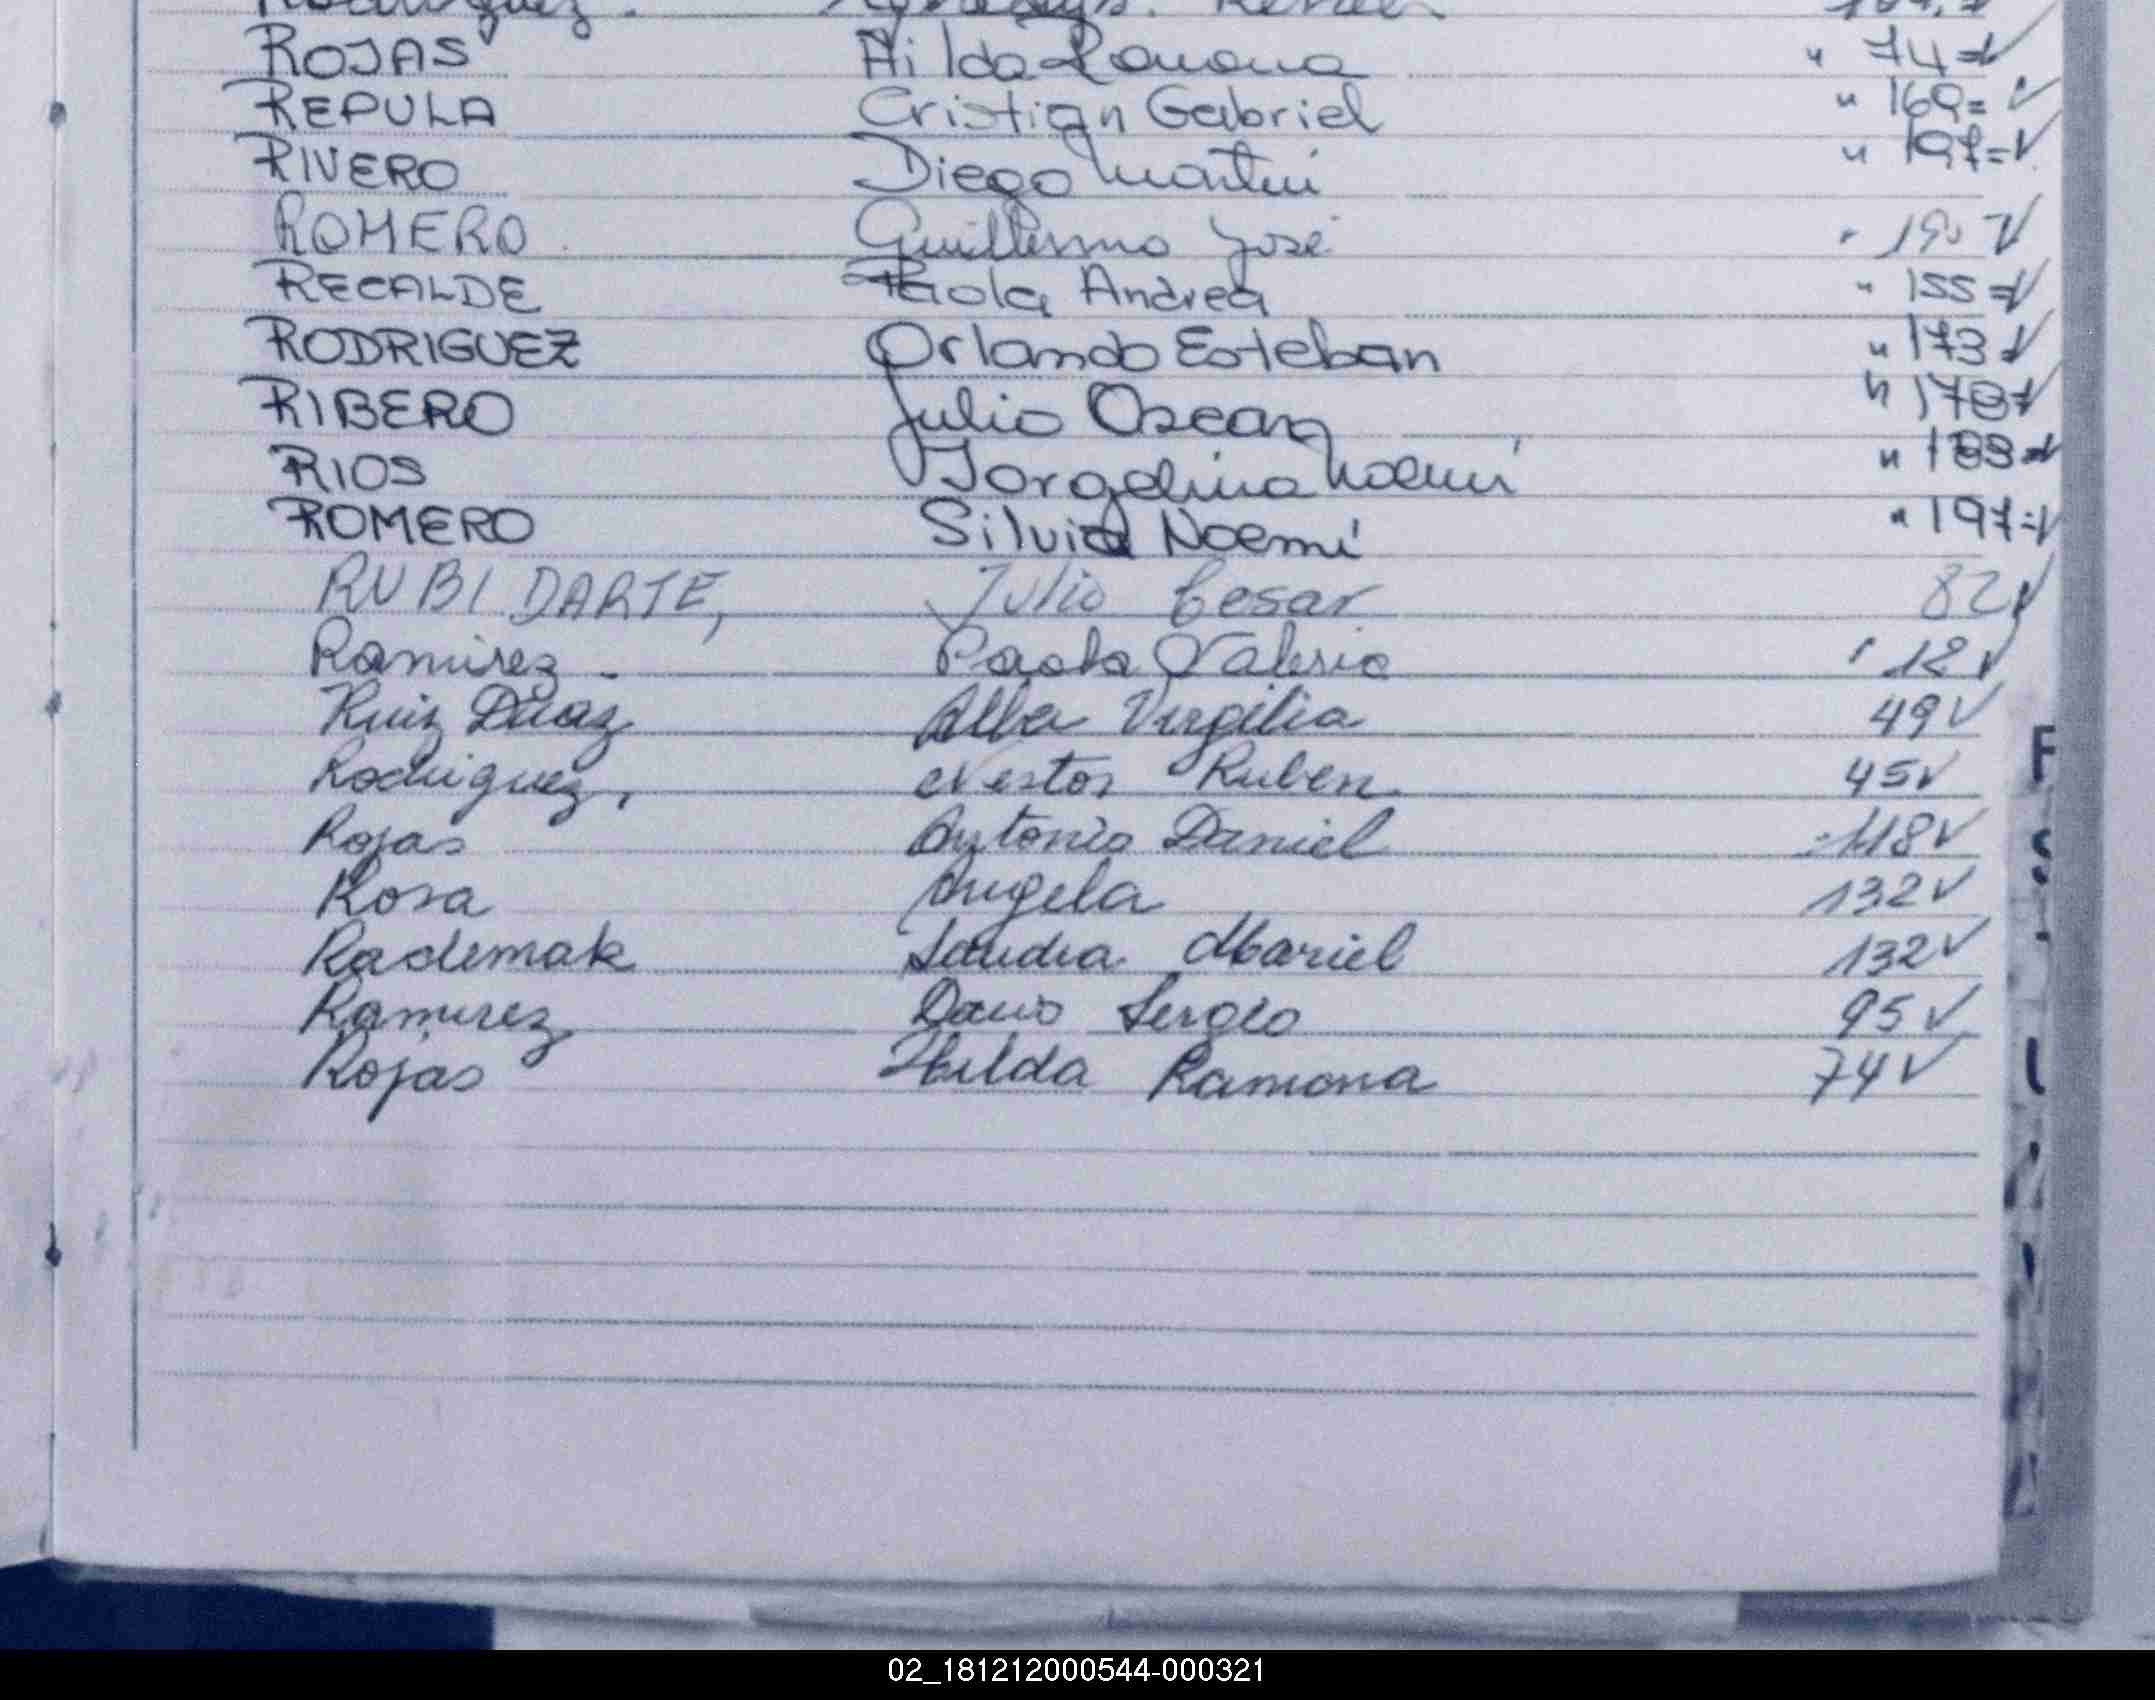 Rodriguez.
ROJAS Hilda Ramona " 74=✓
REPULA Cristian Gabriel " 169=✓
RIVERO Diego Martín " 197=✓
ROMERO Guillermo José " 190 ✓
RECALDE Paola Andrea " 155=✓
RODRIGUEZ Orlando Esteban " 173 ✓
RIBERO Julio Oscar " 178 ✓
RIOS Jorgelina Noemí " 188=✓
ROMERO Silvia Noemí " 197=✓
RUBI DARTE, Julio Cesar 82 ✓
Ramirez. Paola Valeria " 12 ✓
Ruiz Diaz Alba Virgilia 49 ✓
Rodriguez, Nestor Ruben 45 ✓
Rojas Antonio Daniel 118 ✓
Rosa Angela 132 ✓
Rademak Sandra Mariel 132 ✓
Ramirez Dario Sergio 95 ✓
Rojas Hilda Ramona 74 ✓
02_181212000544-000321